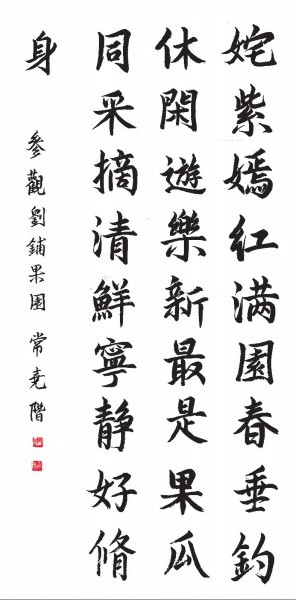 姹紫嫣红满園春垂釣
休閑遊樂新最是果瓜
同采摘清鮮寧静好脩
身
參觀劉鋪果園 常堯階